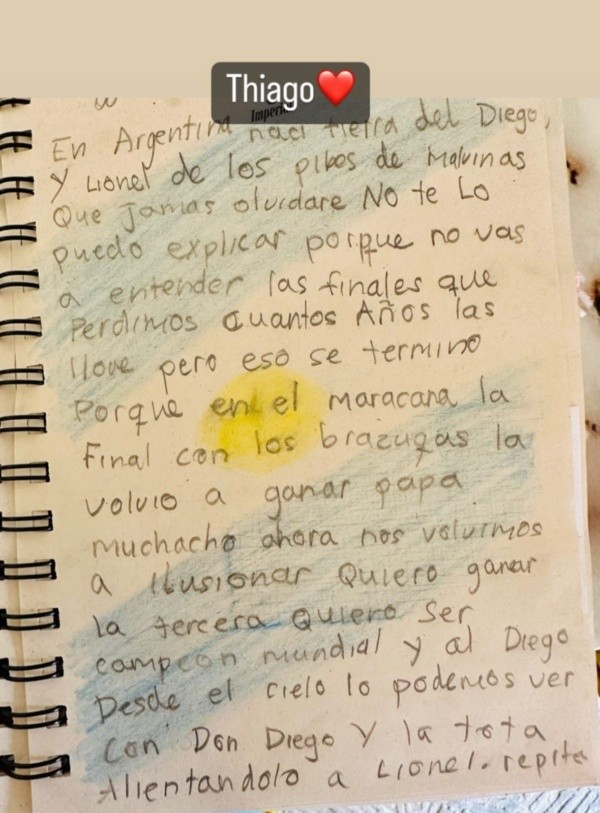 Thiago❤️
En Argentina naci tierra del Diego,
Y Lionel de los pibes de Malvinas
Que jamas olvidare NO te Lo
puedo explicar porque no vas
a entender las finales que
Perdimos cuantos Años las
llove pero eso se termino
Porque en el maracana la
Final con los brazugas la
volvio a ganar papa
muchacho ahora nos volvimos
a ilusionar Quiero ganar
la tercera Quiero Ser
campeon mundial y al Diego
Desde el cielo lo podemos ver
Con Don Diego Y la tota
Alientandolo a Lionel. repita